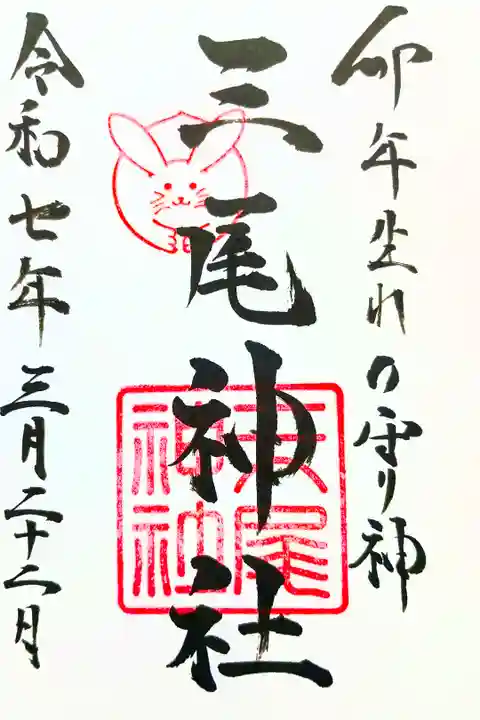 卯年生れの守り神
三尾神社
三尾神社
令和七年三月二十二月